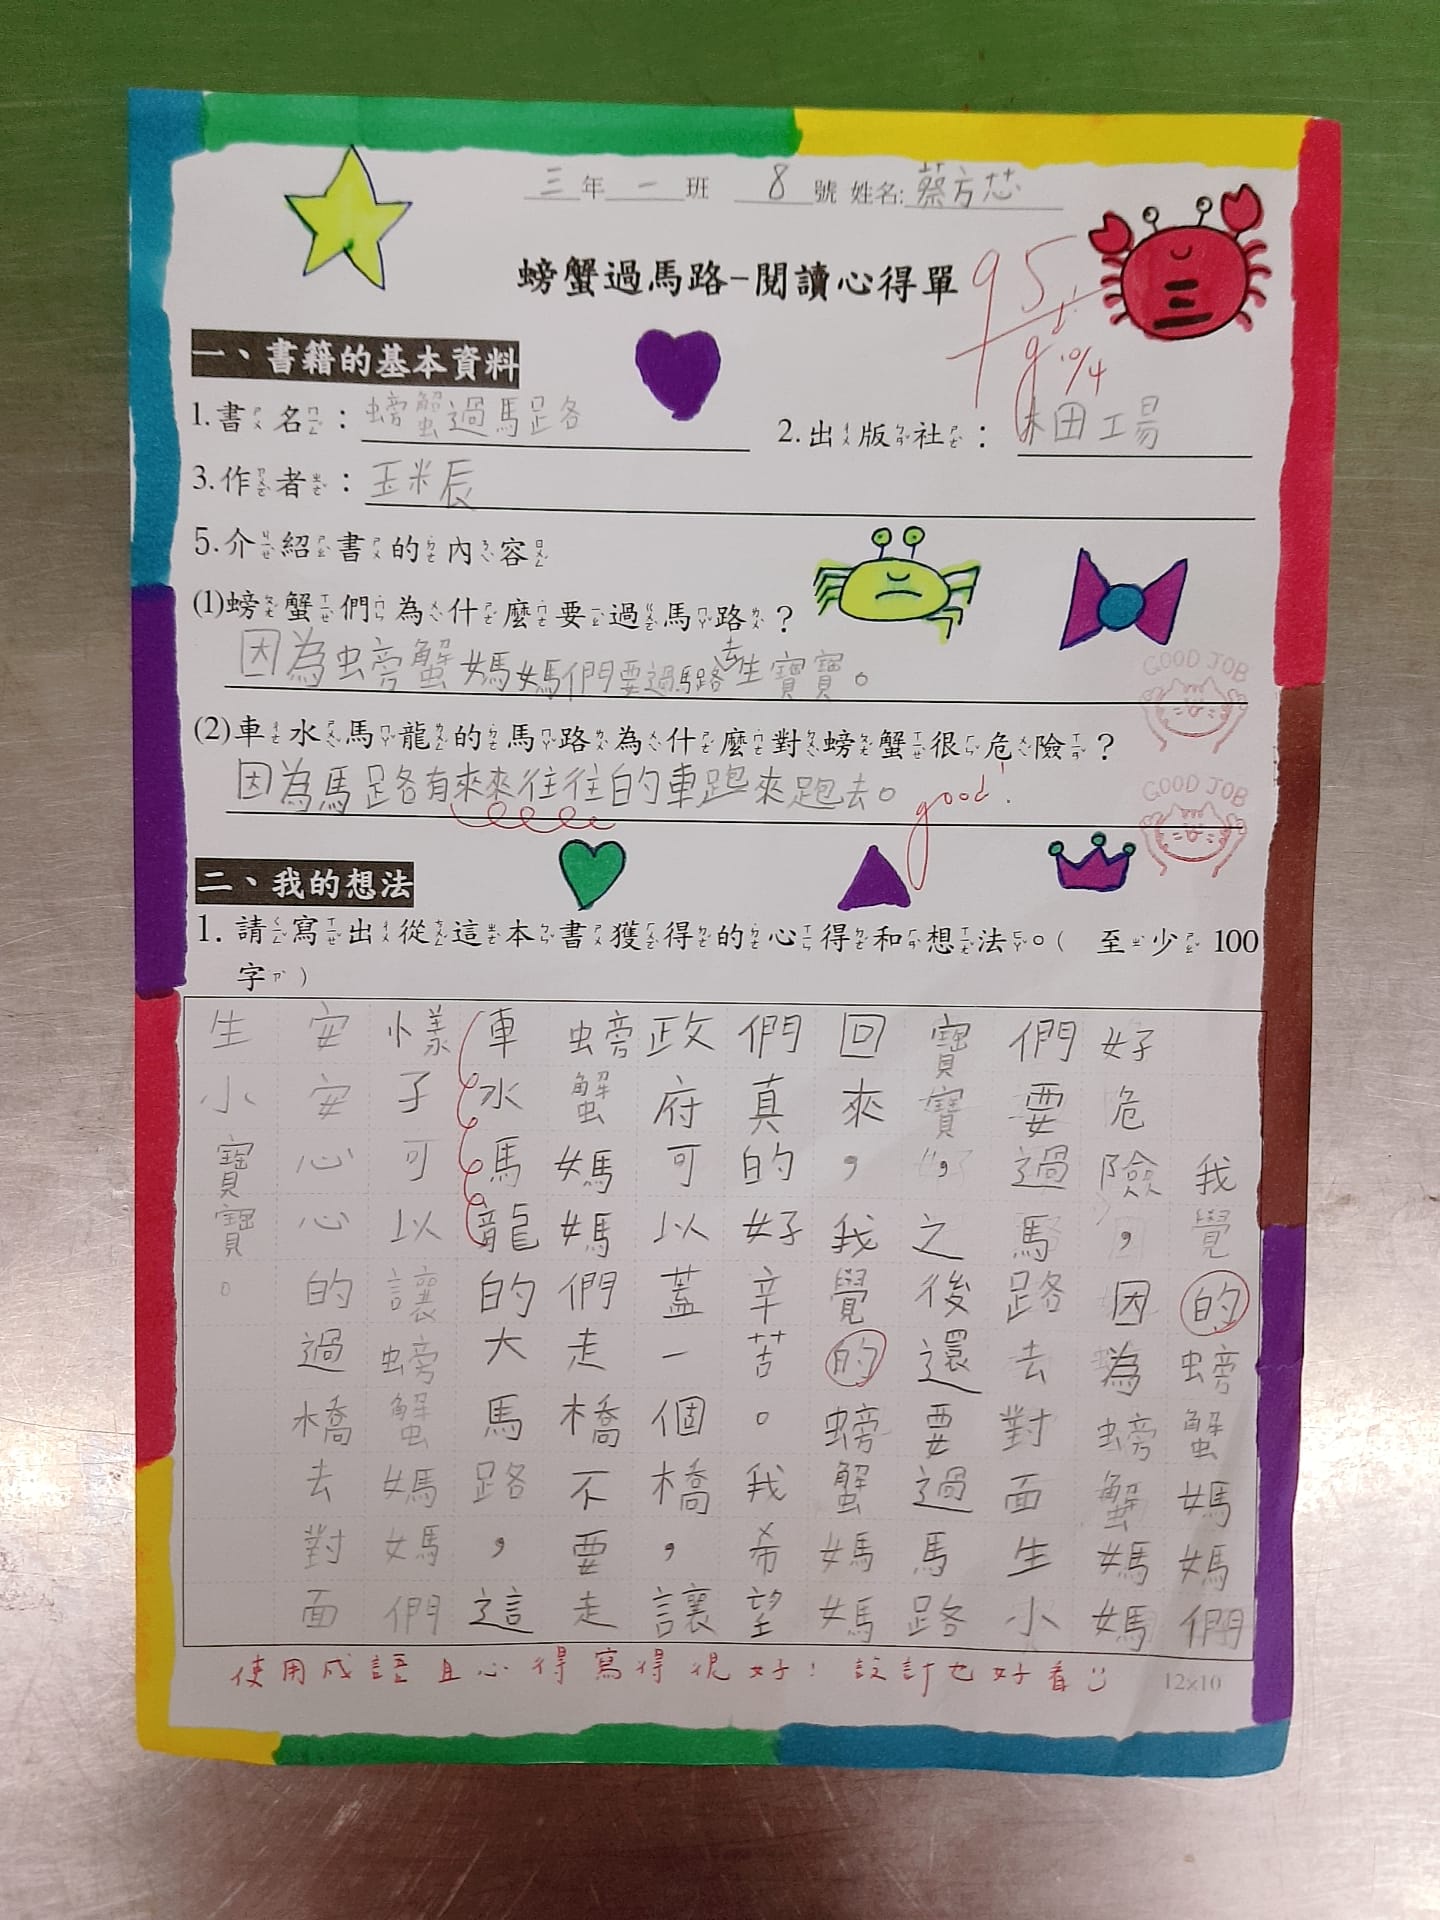 三年一班 8號 姓名:蔡方芯
螃蟹過馬路-閱讀心得單
95
10/4
一、書籍的基本資料
1.書名：螃蟹過馬路
2.出版社：木田工場
3.作者：玉米辰
5.介紹書的內容
(1)螃蟹們為什麼要過馬路？
因為螃蟹媽媽們要過馬路去生寶寶。
GOOD JOB
(2)車水馬龍的馬路為什麼對螃蟹很危險？
因為馬路有來來往往的車跑來跑去。
good!
GOOD JOB
二、我的想法
1.請寫出從這本書獲得的心得和想法。(至少100
字)
我覺的螃蟹媽媽們
好危險，因為螃蟹媽媽
們要過馬路去對面生小
寶寶，之後還要過馬路
回來，我覺的螃蟹媽媽
們真的好辛苦。我希望
政府可以蓋一個橋，讓
螃蟹媽媽們走橋不要走
車水馬龍的大馬路，這
樣子可以讓螃蟹媽媽們
安安心心的過橋去對面
生小寶寶。
使用成語且心得寫得很好！設計也好看
12x10